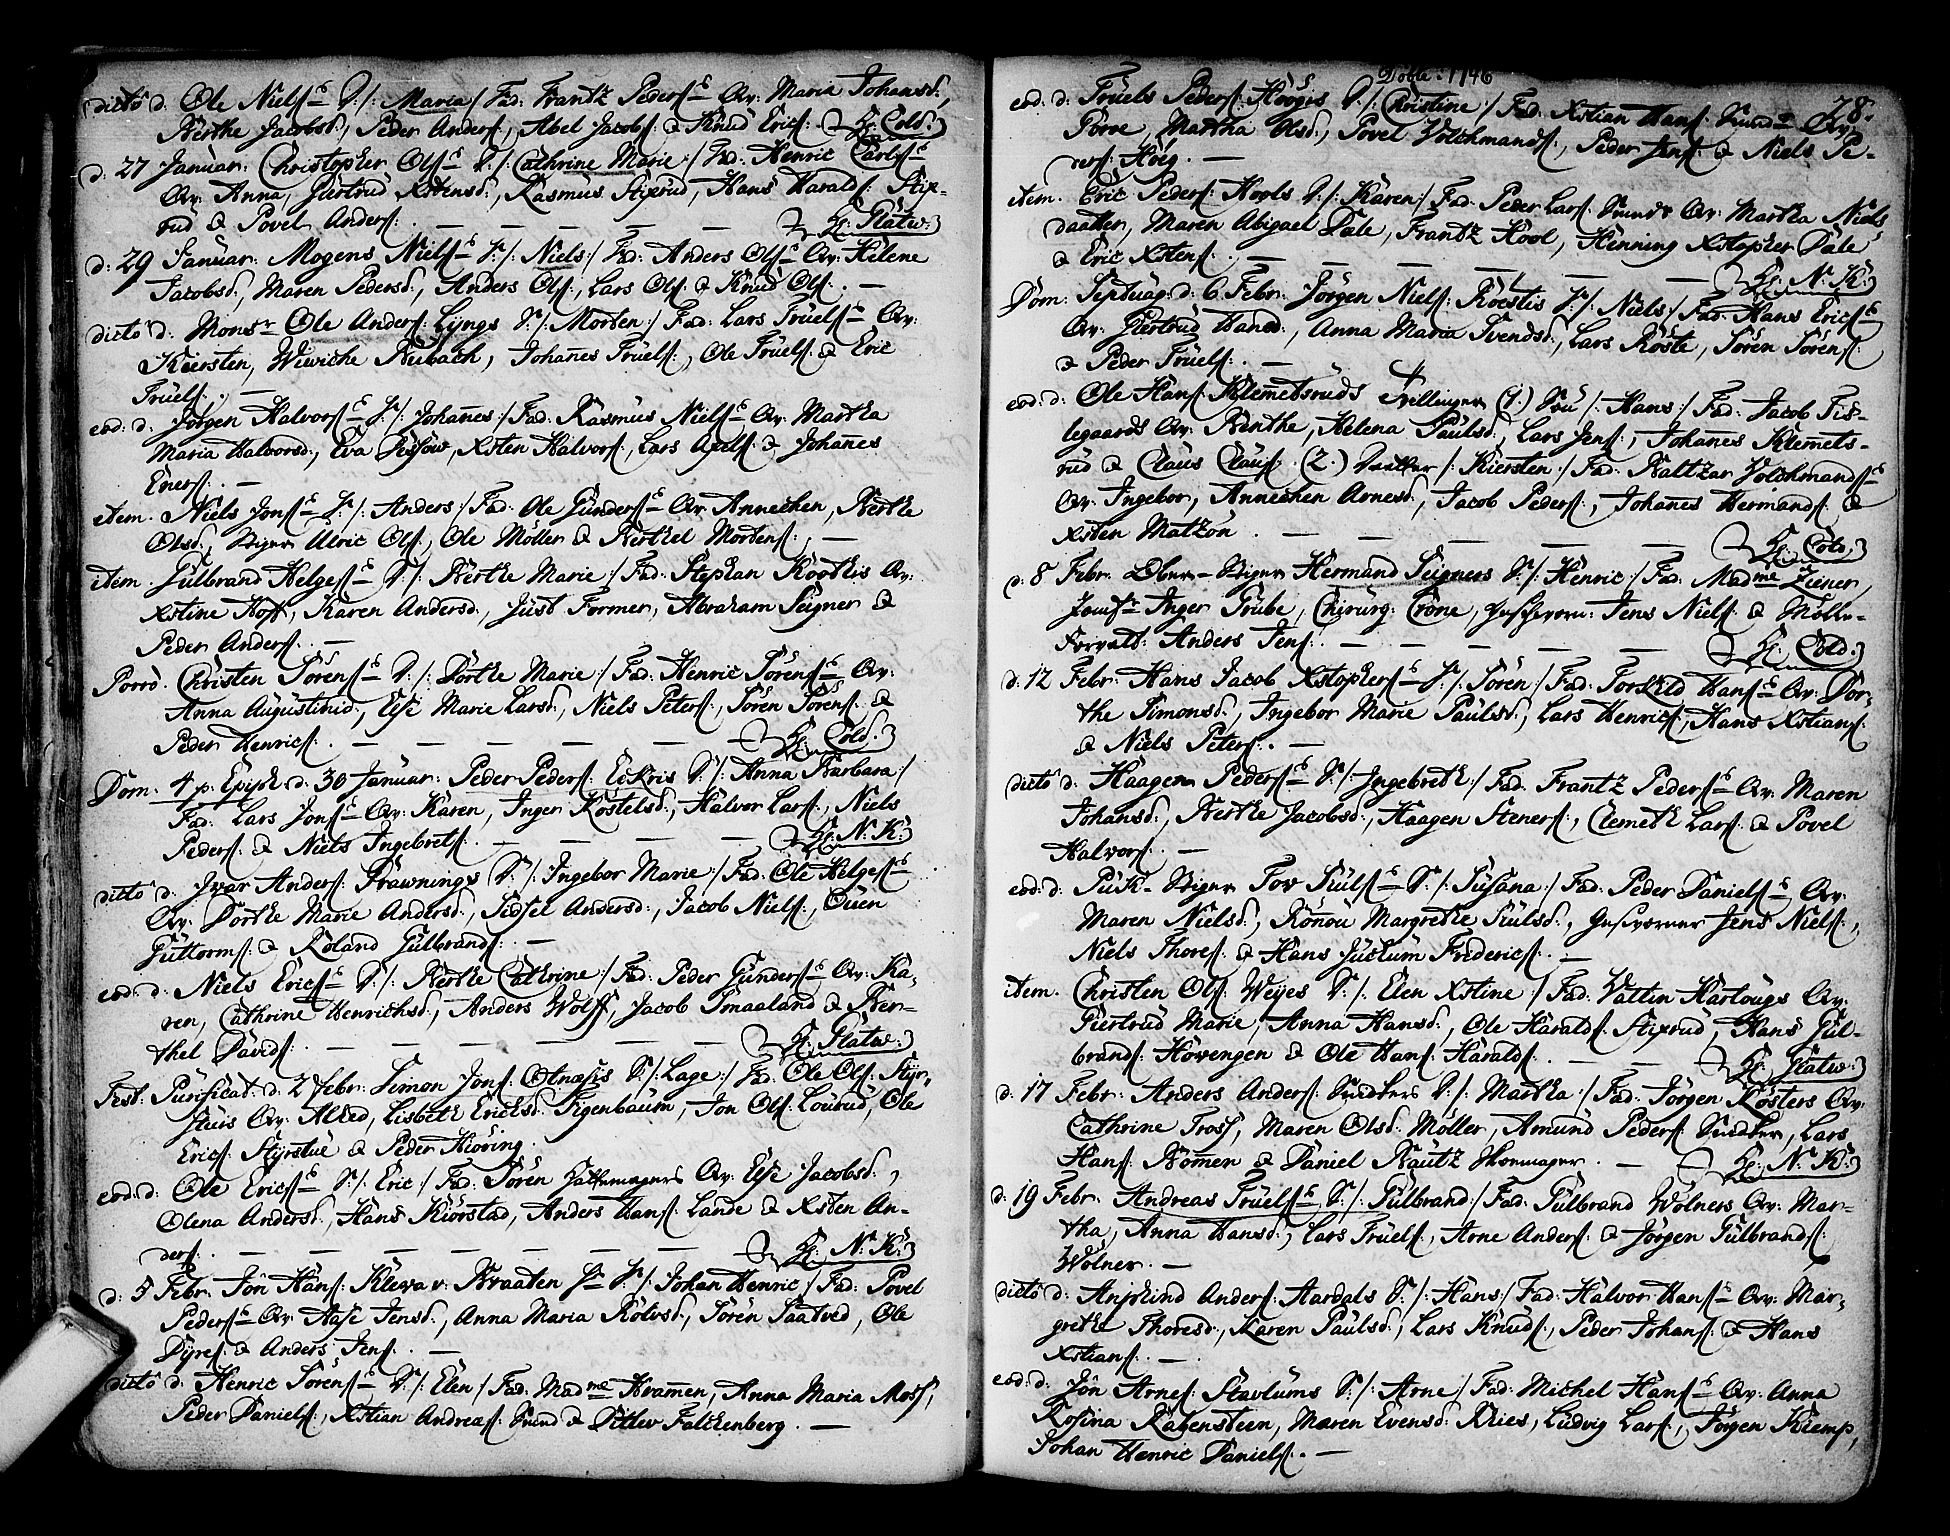 dicto d. Ole Niels: D:/: Maria/ Fad: Frantz Peders: Qv: Maria Johansd:,
Berthe Jacobsd:, Peder Anders:, Abel Jacobs: & Knud Erics: H: Cold:
d: 27 Januar: Christopher Ols: D:/: Cathrine Marie:/ Fad: Henric Carls:
Qv: Anna, Giertrud Xstensd:, Rasmus Stixrud, Hans Harald: Stix-
rud & Povel Anders: . — — — — H: Glatw:
d: 29 Januar: Mogens Niels: S:/: Niels:/ Fad: Anders Ols: Qv: Helene
Jacobsd:, Maren Pedersd:, Anders Ols:, Lars Ols: & Knud Ols: . —
dicto d: Monsr Ole Anders: Lyngs S:/: Morten:/ Fad: Lars Truels: Qv:
Kiersten, Wiwiche Neubach, Johannes Truels:, Ole Truels: & Eric
Truels: . —
eod: d: Jørgen Halvors: S:/: Johannes:/ Fad: Rasmus Niels: Qv: Martha
Maria Halvorsd:, Eva, Xsten Halvors:, Lars Axels: & Johannes
Eners: . —
item. Niels Jons: S:/: Anders:/ Fad: Ole Gunders: Qv: Annechen, Berthe
Olsd:, Stiger Ulric Ols:, Ole Möller & Berthel Mortens: . —
item. Gulbrand Helges: D:/: Berthe Marie:/ Fad: Stephan Qv:
Xstine Hoff, Karen Andersd:, Just Former, Abraham Seigner &
Peder Anders: . —
Porrò. Christen Sörens: D:/: Dorthe Marie:/ Fad: Henric Sörens: Qv:
Anna Augustinid:, Else Marie Larsd:, Niels Peters:, Sören Sörens: &
Peder Henrics: . — — — — — H: Cold:
Dom: 4 p: Epiph: d: 30 Januar: Peder Peders: Eckris D:/: Anna Barbara/
Fad: Lars Jons: Qv: Karen, Inger Köstelsd:, Halvor Lars:, Niels
Peders: & Niels Ingebrets: . — — — H: N: K:
ditto d: Ivar Anders: Brawnings D:/: Ingebor Marie:/ Fad: Ole Helges:
Qv: Dorthe Marie Andersd:, Sidsel Andersd:, Jacob Niels:, Ouen
Guttorms: & Roland Gulbrands: . —
eod: d: Niels Erics: D:/: Berthe Cathrine:/ Fad: Peder Gunders: Qv: Ka-
ren, Cathrine Henrichsd:, Anders Wolff, Jacob Smaaland & Ber-
thel Davids: . — — — — — H: Glatw:
Fest: Purificat: d: 2 febr: Simon Jons: Otnæsis S:/: Lage:/ Fad: Ole Ols: Styr-
Qv: Alhed, Lisbeth Ericksd: Figenbaum, Jon Ols: Lourud, Ole
Erics: Styrstue & Peder Kiöring.
eod: d: Ole Erics: S:/: Eric:/ Fad: Sören Hattemagers Qv: Else Jacobsd:,
Olena Andersd:, Hans Kiörstad, Anders Hans: Lande & Xsten An-
ders: . — — — — — — H: N: K:
d: 5 Febr: Jon Hans: Klewa v: Braaten S:/: Johan Henric:/ Fad: Povel
Peders: Qv: Aase Jensd:, Anna Maria Rolvsd:, Sören Saatved, Ole
Dyres: & Anders Jens: . —
dicto d: Henric Sörens: D:/: Elen:/ Fad: Madme Kramen, Anna Maria Moss,
Peder Daniels:, Xstian Andreas: Smed & Ditlev Falckenberg . —
Doble: 1746
28.
eod: d: Truels Peders: Höegs D:/: Christine:/ Fad: Xstian Hans: Qv:
Pörve, Martha Olsd:, Povel Volchmands:, Peder Jens: & Niels Pe-
ders: Höeg. —
item. Eric Peders: Hools D:/: Karen:/ Fad: Peder Lars: Qv: Martha Niels
daatter, Maren Abigael Dale, Frantz Hool, Henning Xstopher Dale
& Eric Xstens: . — — — — — H: N: K:
Dom: Septuag: d: 6 Febr: Jörgen Niels: S:/: Niels:/ Fad: Hans Erics:
Qv: Giertrud Hansd:, Anna Maria Svendsd:, Lars Röste, Sören Sörens:
& Peder Truels: . —
eod: d: Ole Hans: Klemetsruds Tvillinger (1.) Sön /: Hans:/ Fad: Jacob Tis-
legaards Qv: Berthe, Helena Paulsd:, Lars Jens:, Johannes Klemets-
rud & Claus Claus: . (2.) Daatter/: Kiersten:/ Fad: Baltzar Volchmands:
Qv: Ingebor, Annechen Arnesd:, Jacob Peders:, Johannes Hermands: &
Xsten Matzon . — — — — — H: Cold:
d: 8 Febr: Ober-Stiger Hermand Seigners S:/: Henric:/ Fad: Madme Ziener,
Jomfr Inger Grube, Chirurg: Crone, Jens Niels: & Mölle-
Forvalt: Anders Jens: . — — — — H: Cold:
d: 12 Febr: Hans Jacob Xstophers: S:/: Sören:/ Fad: Torkild Hans: Qv: Dor-
the Simonsd:, Ingebor Marie Paulsd:, Lars Henrics:, Hans Xstians:
& Niels Peters: . —
dicto d: Haagen Peders: S:/: Ingebreth:/ Fad: Frantz Peders: Qv: Maren
Johansd:, Berthe Jacobsd:, Haagen Steners:, Clemeth Lars: & Povel
Halvors: . —
eod: d: Puk-Stiger Tov Juls: D:/: Susana:/ Fad: Peder Daniels: Qv:
Maren Nielsd:, Rönou Margrethe Julsd:, Jens Niels:,
Niels Thores: & Hans Juckum Friderics: . —
item. Christen Ols: Weyes D:/: Elen Xstine:/ Fad: Vattin Hartougs Qv:
Giertrud Marie, Anna Hansd:, Ole Harald: Stixrud, Hans Gul-
brands: Hovengen & Ole Hans: Haralds: . — — H: Glatw:
d: 17 Febr: Anders Anders: Snedkers D:/: Martha:/ Fad: Jörgen Kösters Qv:
Cathrine Trosf, Maren Olsd: Möller, Amund Peders: Snedker, Lars
Hans: Bömen & Daniel Bautz Skomager . — H: N: K:
d: 19 Febr: Andreas Truels: S:/: Gulbrand:/ Fad: Gulbrand Wölners Qv: Mar-
tha, Anna Hansd:, Lars Truels:, Arne Anders: & Jörgen Gulbrands:
Wölner . —
dicto d: Anskind Anders: Aardals S:/: Hans:/ Fad: Halvor Hans: Qv: Mar-
grethe Thoresd:, Karen Paulsd:, Lars Knuds:, Peder Johans: & Hans
Xstians: . —
eod: d: Jön Arnes: Stavlums S:/: Arne:/ Fad: Michel Hans: Qv: Anna
Rosina Rabensteen, Maren Evensd: Kries, Ludvig Lars:, Jörgen Klemp,
Johan Henric Daniels: . —